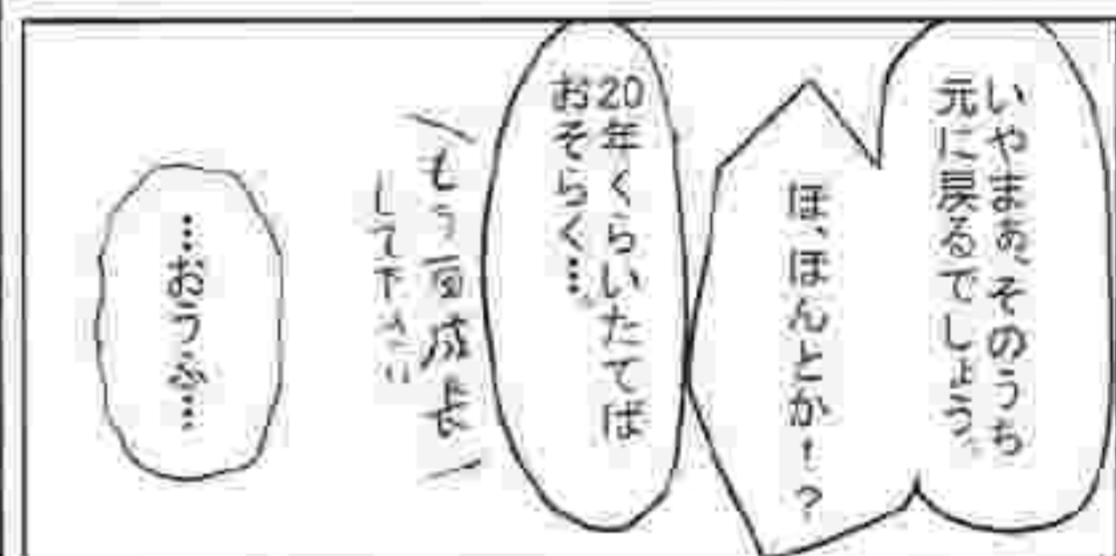 いやまぁ、そのうち
元に戻るでしょう。
ほ、ほんとか！？
20年くらいたてば
おそらく…
もう一回成長
して下さい
…おうふ…